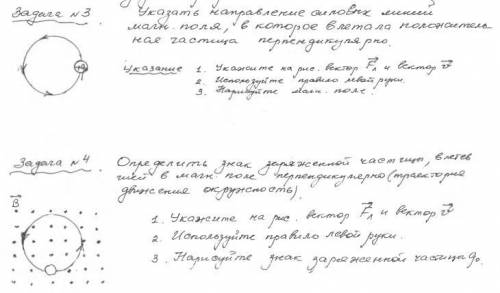 Задача №3. Указать направление силовых линий
магн. поля, в которое влетала положитель
ная частица перпендикулярно.
Указание 1. Укажите на рис. вектор F⃗л и вектор v⃗
2. Используйте правило левой руки.
3. Нарисуйте магн. поле.
Задача №4. Определить знак заряженной частицы, влетев
шей в магн. поле перпендикулярно (траектория
движения окружность).
B⃗
1. Укажите на рис. вектор F⃗л и вектор v⃗
2. Используйте правило левой руки.
3. Нарисуйте знак заряженной частицы